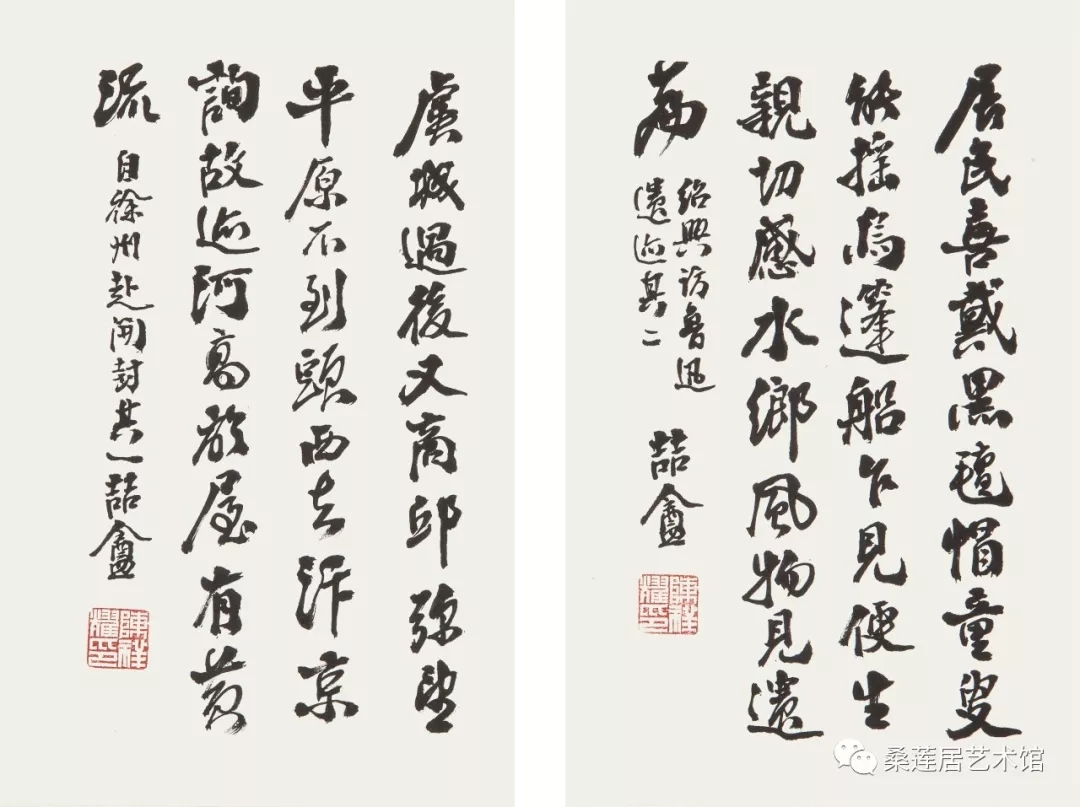 居民喜戴黑氊帽童叟
能摇烏篷船乍見便生
親切感水鄉風物見遺
篇
紹興訪魯迅
遺迹其二
喆盦
陳祥耀印
虞城過後又商邱弥望
平原不到頭西去汴京
詢故迹河高於屋有黄
流
自徐州赴開封其一喆盦
陳祥耀印
桑莲居艺术馆